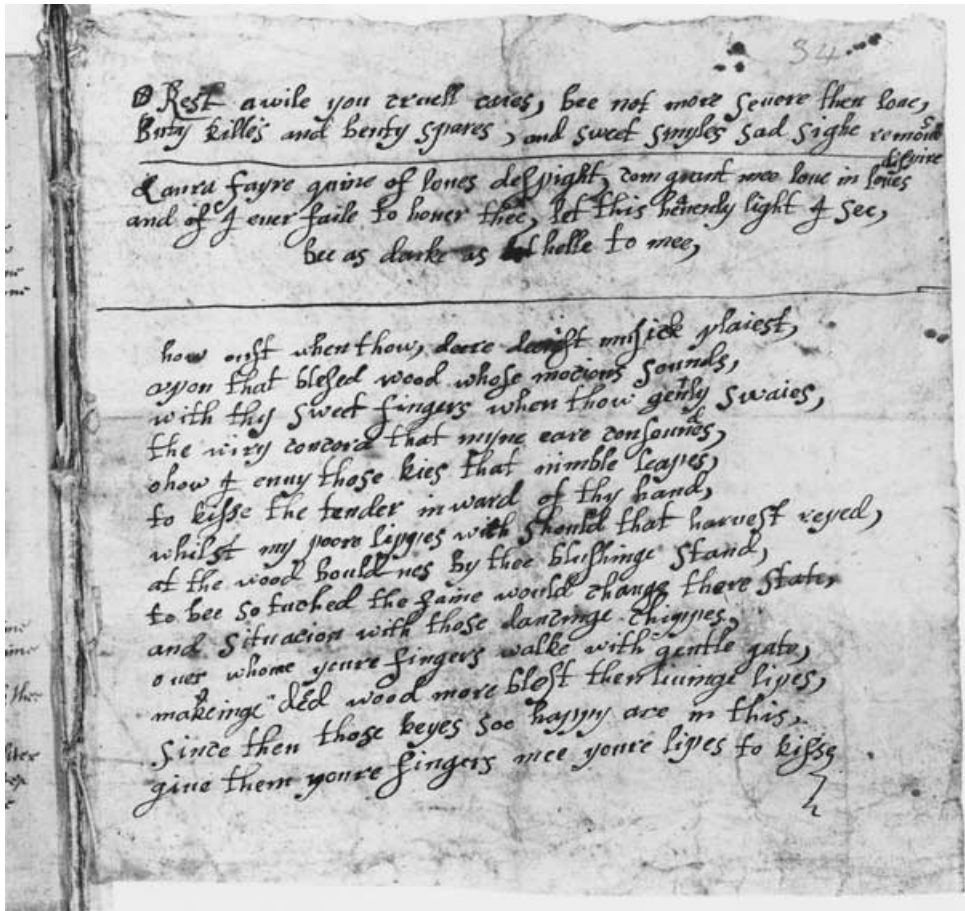 34
Rest awile you cruell cares, bee not more severe then loue,
Buty killes and beuty spares, and sweet smyles sad sighe remoues
dispire
Laura fayre quine of loues despight, com grant mee loue in loues
and of I ever faile to honer thee, let this hevenly light I see,
bee as darke as hell to mee,
how oust when thow, deere deerist musick plaiest,
apon that blesed wood whose mocions sounds,
with thy sweet fingers when thow gently swaies,
the wiry concord that myne eare consoundes,
ohow I enuy those kies that nimble leapes,
to kisse the tender inward of thy hand,
whilst my poore lippes wich should that harvest reped,
at the wood bouldnes by thee blushinge stand,
to bee so tuched the faine would change there state,
and situacion with those dancinge chippes,
ouer whome youre fingers walke with gentle gate,
makeinge ded wood more blest then liuinge lipes,
Since then those keyes soe happy are in this,
giue them youre fingers mee youre lipes to kisse